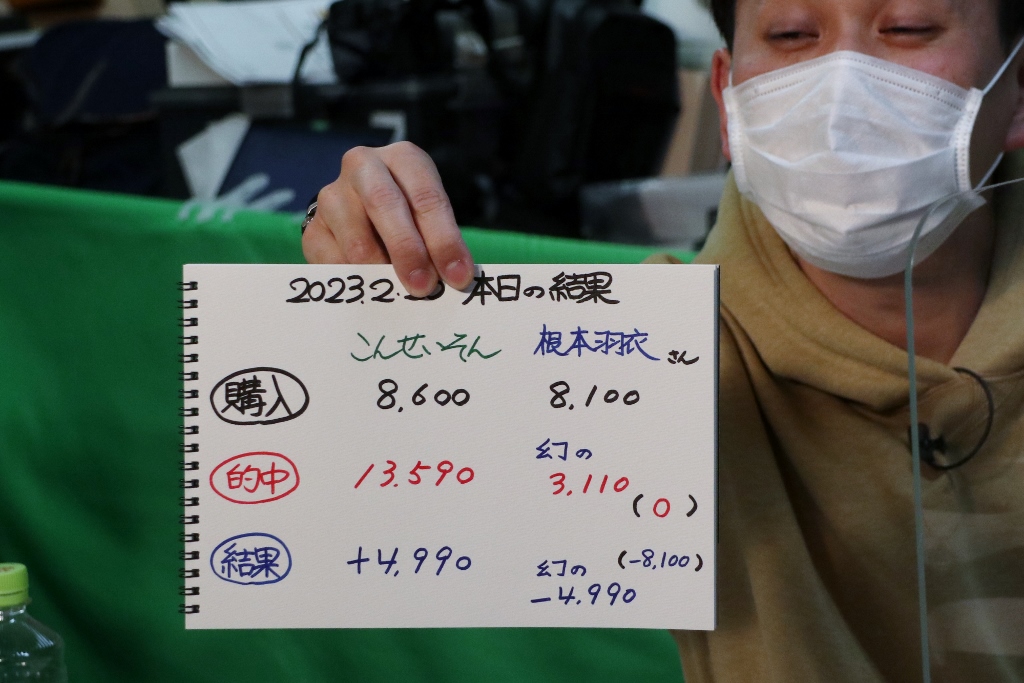 2023.2. 本日の結果
こんせいそん 根本羽衣さん
購入 8,600 8,100
的中 13.590 幻の 3,110 (0)
結果 +4,990 幻の -4.990 (-8,100)